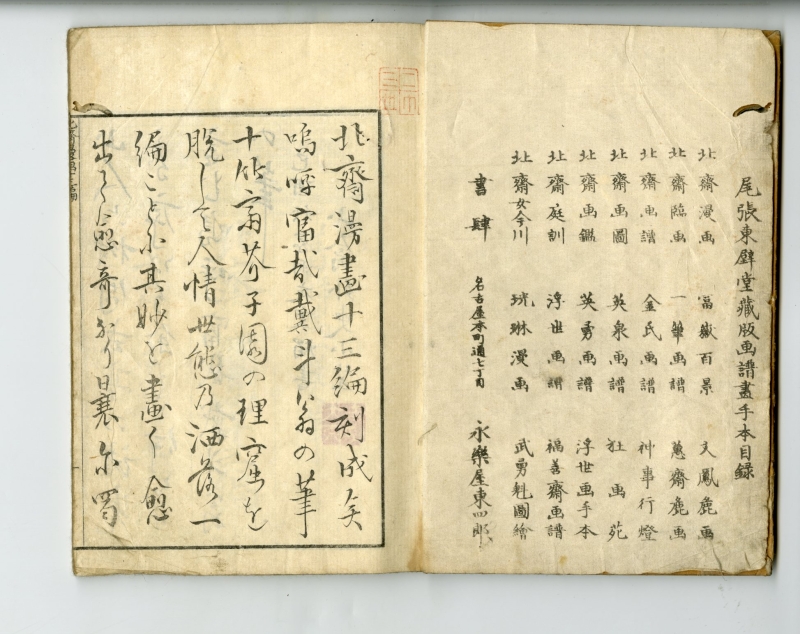 尾張東壁堂藏版画譜畫手本目録
北齋漫画 富嶽百景 文鳳麁画
北齋臨画 一筆画譜 蕙齋麁画
北齋画譜 金氏画譜 神事行燈
北齋画圖 英泉画譜 狂画苑
北齋画鑑 英勇画譜 浮世画手本
北齋庭訓 浮世画譜 福善齋画譜
北齋女今川 琉琳漫画 武勇魁圖繪
書肆 名古屋本町通七丁目 永樂屋東四郎
北齋漫畫十三編刻成矣
嗚呼富哉戴斗翁の筆
十竹齋芥子園の理窟を
脱して人情世態乃洒落一
編ことに其妙を畫く愈
出て愈奇なり曩に蜀